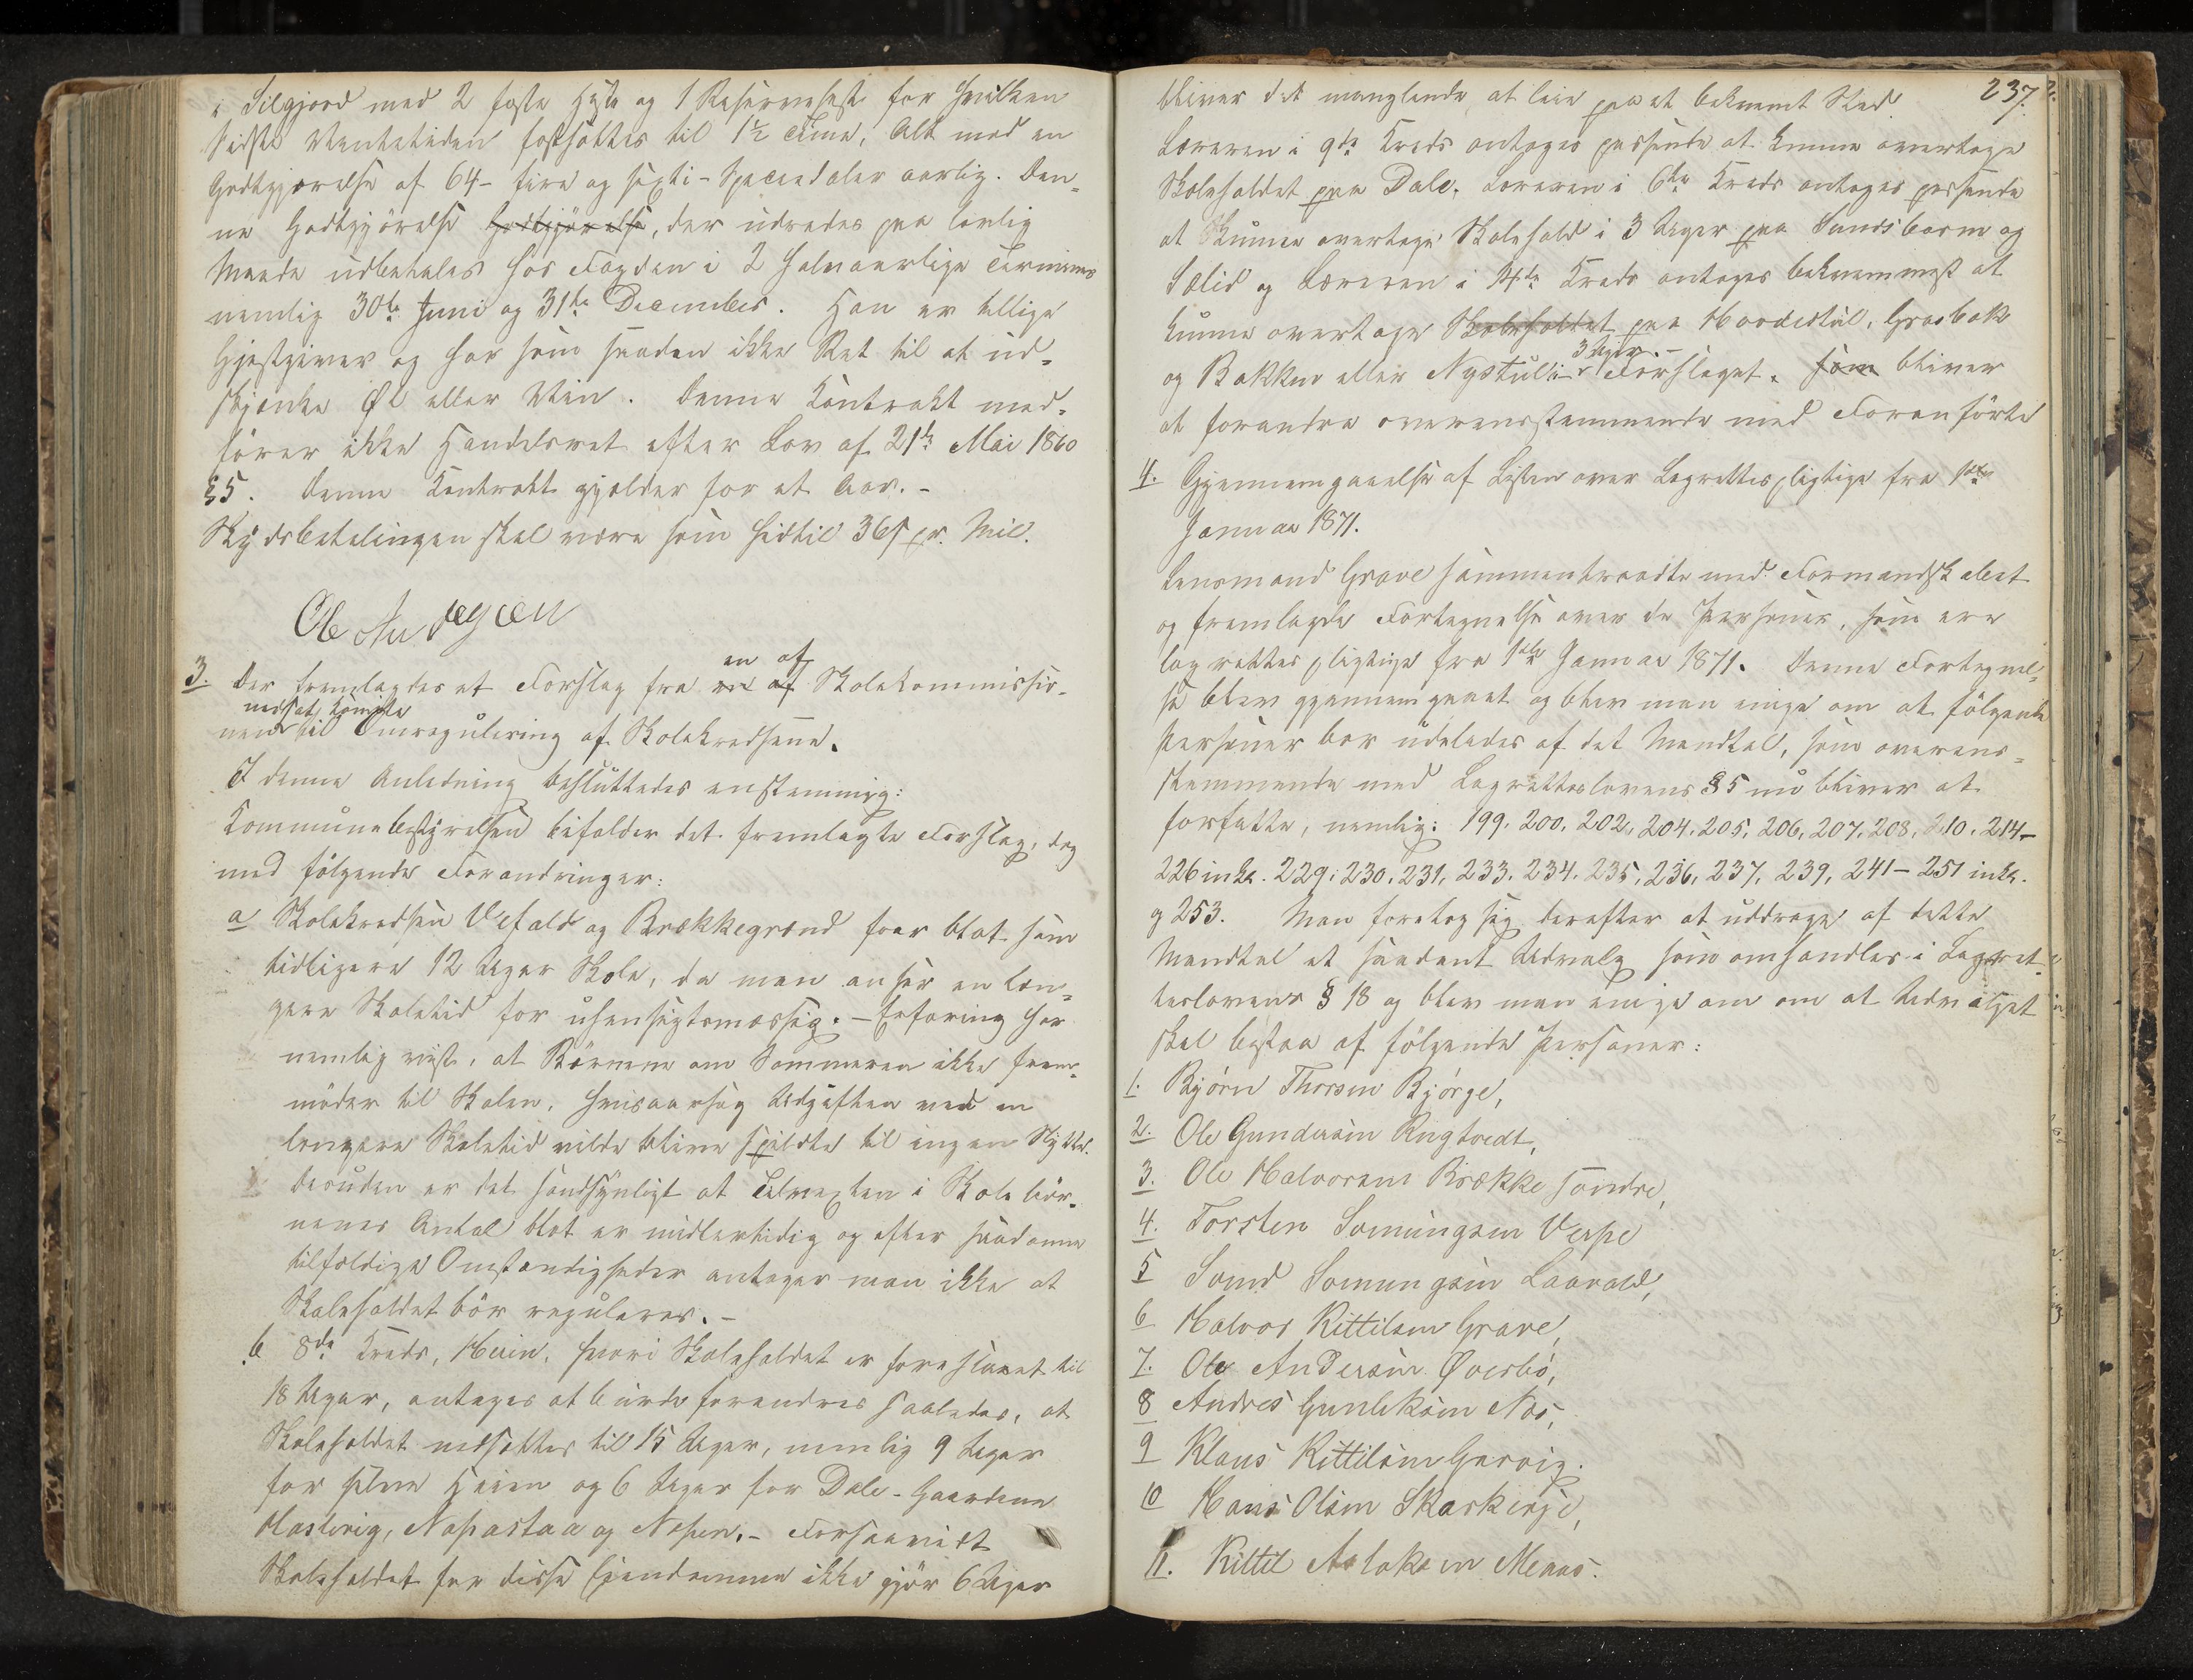 i Siljord med 2 faste Heste og 1 Reservehest for hvilken
sidste Ventetiden fastsættes til 1½ Time, Alt mod en
Godtgjørelse af 64 - fire og sexti - Speciedaler aarlig. Den-
ne Godtgjørelse Godtgjørelse, der udredes paa lovlig
Maade udbetales hos Fogden i 2 halvaarlige Terminer
nemlig 30te Juni og 31te December. Han er tillige
Gjestgiver og har som saadan ikke Ret til at ud-
skjænke Øl eller Vin. Denne Kontrakt med-
fører ikke Handelsret efter Lov af 21de Mai 1860
§5. Denne Kontrakt gjælder for et Aar. -
Skydsbetalingen skal være som hidtil 36 s pr. Mil.
Ole
3. Der fremlagdes et Forslag fra en af en af Skolekommissio-
nedsat Komite
nen til Omregulering af Skolekredsene.
I denne Anledning besluttedes enstemmig:
Kommunebestyrelsen bifalder det fremlagte Forslag, dog
med følgende Forandringer:
a Skolekredsen Vefald og Brækkegrænd faar blot som
tidligere 12 Uger Skole, da man anser en læn-
gere Skoletid for uhensigtsmæssig. - Erfaring har
nemlig vist, at Børnene om Sommeren ikke frem-
møder til Skolen, hvisaarsag Udgiften ved en
længere Skoletid vilde blive spildte til ingen Nytte.
desuden er det sandsynligt at Tilvexten i Skolebør-
nenes Antal blot er midlertidig og efter saadanne
tilfældige Omstændigheder antager man ikke at
Skoleholdet bør reguleres. -
b 8de Kreds, Heien, hvori Skoleholdet er foreslaaet til
18 Uger, antages at burde forandres saaledes, at
Skoleholdet nedsættes til 15 Uger, nemlig 9 Uger
for selve Heien og 6 Uger for Dale-Gaardene
Haslerig, Napastaa og Napen. - Forsaavidt
Skoleholdet for disse Eiendomme ikke gjør 6 Uger
237.
bliver det manglende at leie paa et bekvemt Sted.
Læreren i 9de Kreds antages passende at kunne overtage
Skoleholdet paa Dale. Læreren i 6te Kreds antages passende
at kunne overtage Skolehold i 3 Uger paa Sundsbarm og
Sælid og Læreren i 14de Kreds antages bekvemmest at
kunne overtage Skoleholdet paa Haadestul, Grasbæk
3 Uger. -
og Bakken eller Nystul i Forslaget. som bliver
at forandre overensstemmende med Foranførte
4. Gjennemgaaelse af Listen over Lagrettepligtige fra 1ste
Januar 1871.
Lensmand Grave sammentraadte med Formandskabet
og fremlagde Fortegnelse over de Personer, som ere
lagrettespligtige fra 1ste Januar 1871. Denne Fortegnel-
se blev gjennemgaaet og blev man enige om at følgende
Personer bør udelades af det Mandtal, som overens-
stemmende med Lagretteslovens §5 nu bliver at
forfatte, nemlig: 199. 200. 202. 204. 205. 206. 207. 208. 210. 214-
226 inkl. 229. 230. 231. 233. 234. 235. 236. 237. 239, 241 - 251 inkl.
og 253. Man foretog sig derefter at uddrage af dette
Mandtal et saadant Udvalg som omhandles i Lagret-
teslovens § 18 og blev man enige om om at Udvalget
skal bestaa af følgende Personer:
1. Bjørn Thorsen Bjørge,
2. Ole Gundersen Rugtvedt,
3. Ole Halvorsen Brække søndre,
4. Torsten Somungsen Verpe
5 Sveind Somungsen Laavald,
6 Halvor Kittilsen Grave,
7. Ole Andersen Øverbø,
8 Andres Gunleksen Næs,
9 Klaus Kittilsen Garvig.
10 Hans Olsen Skaskerje,
11. Kittil Aslaksen Menaas.